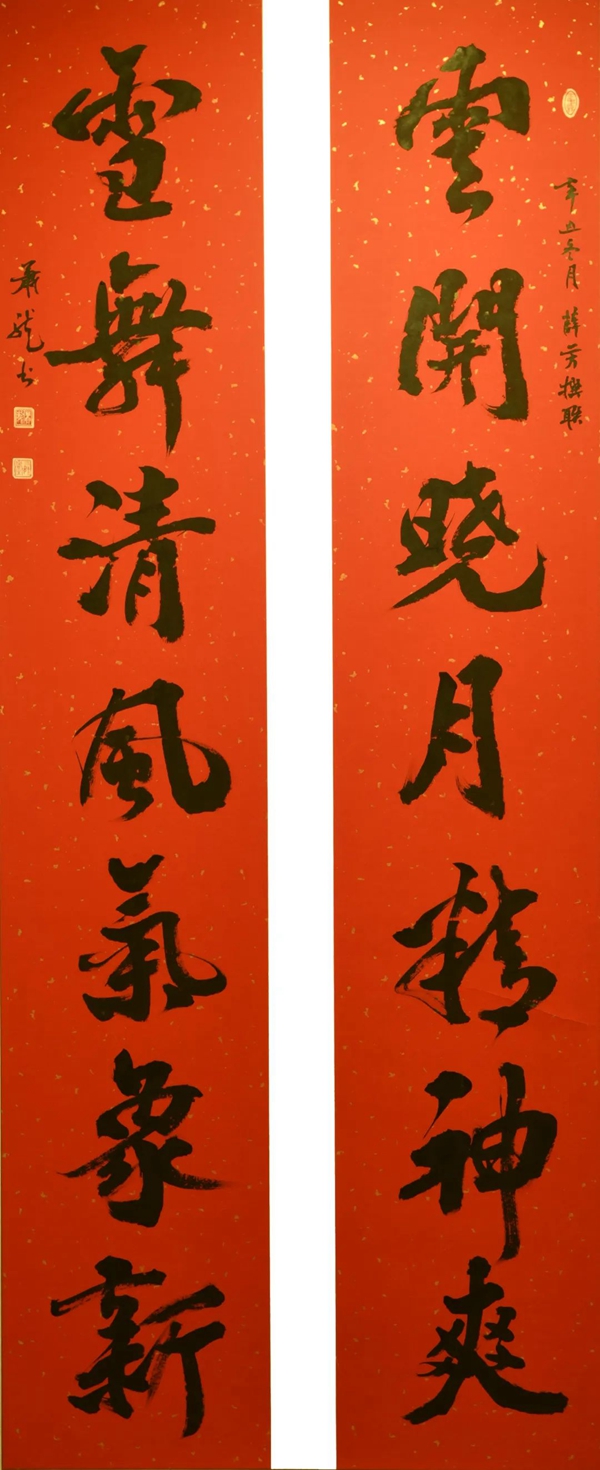 雲開曉月精神爽
辛丑冬月 薛芳撰聯
雪舞清風氣象新
龍书